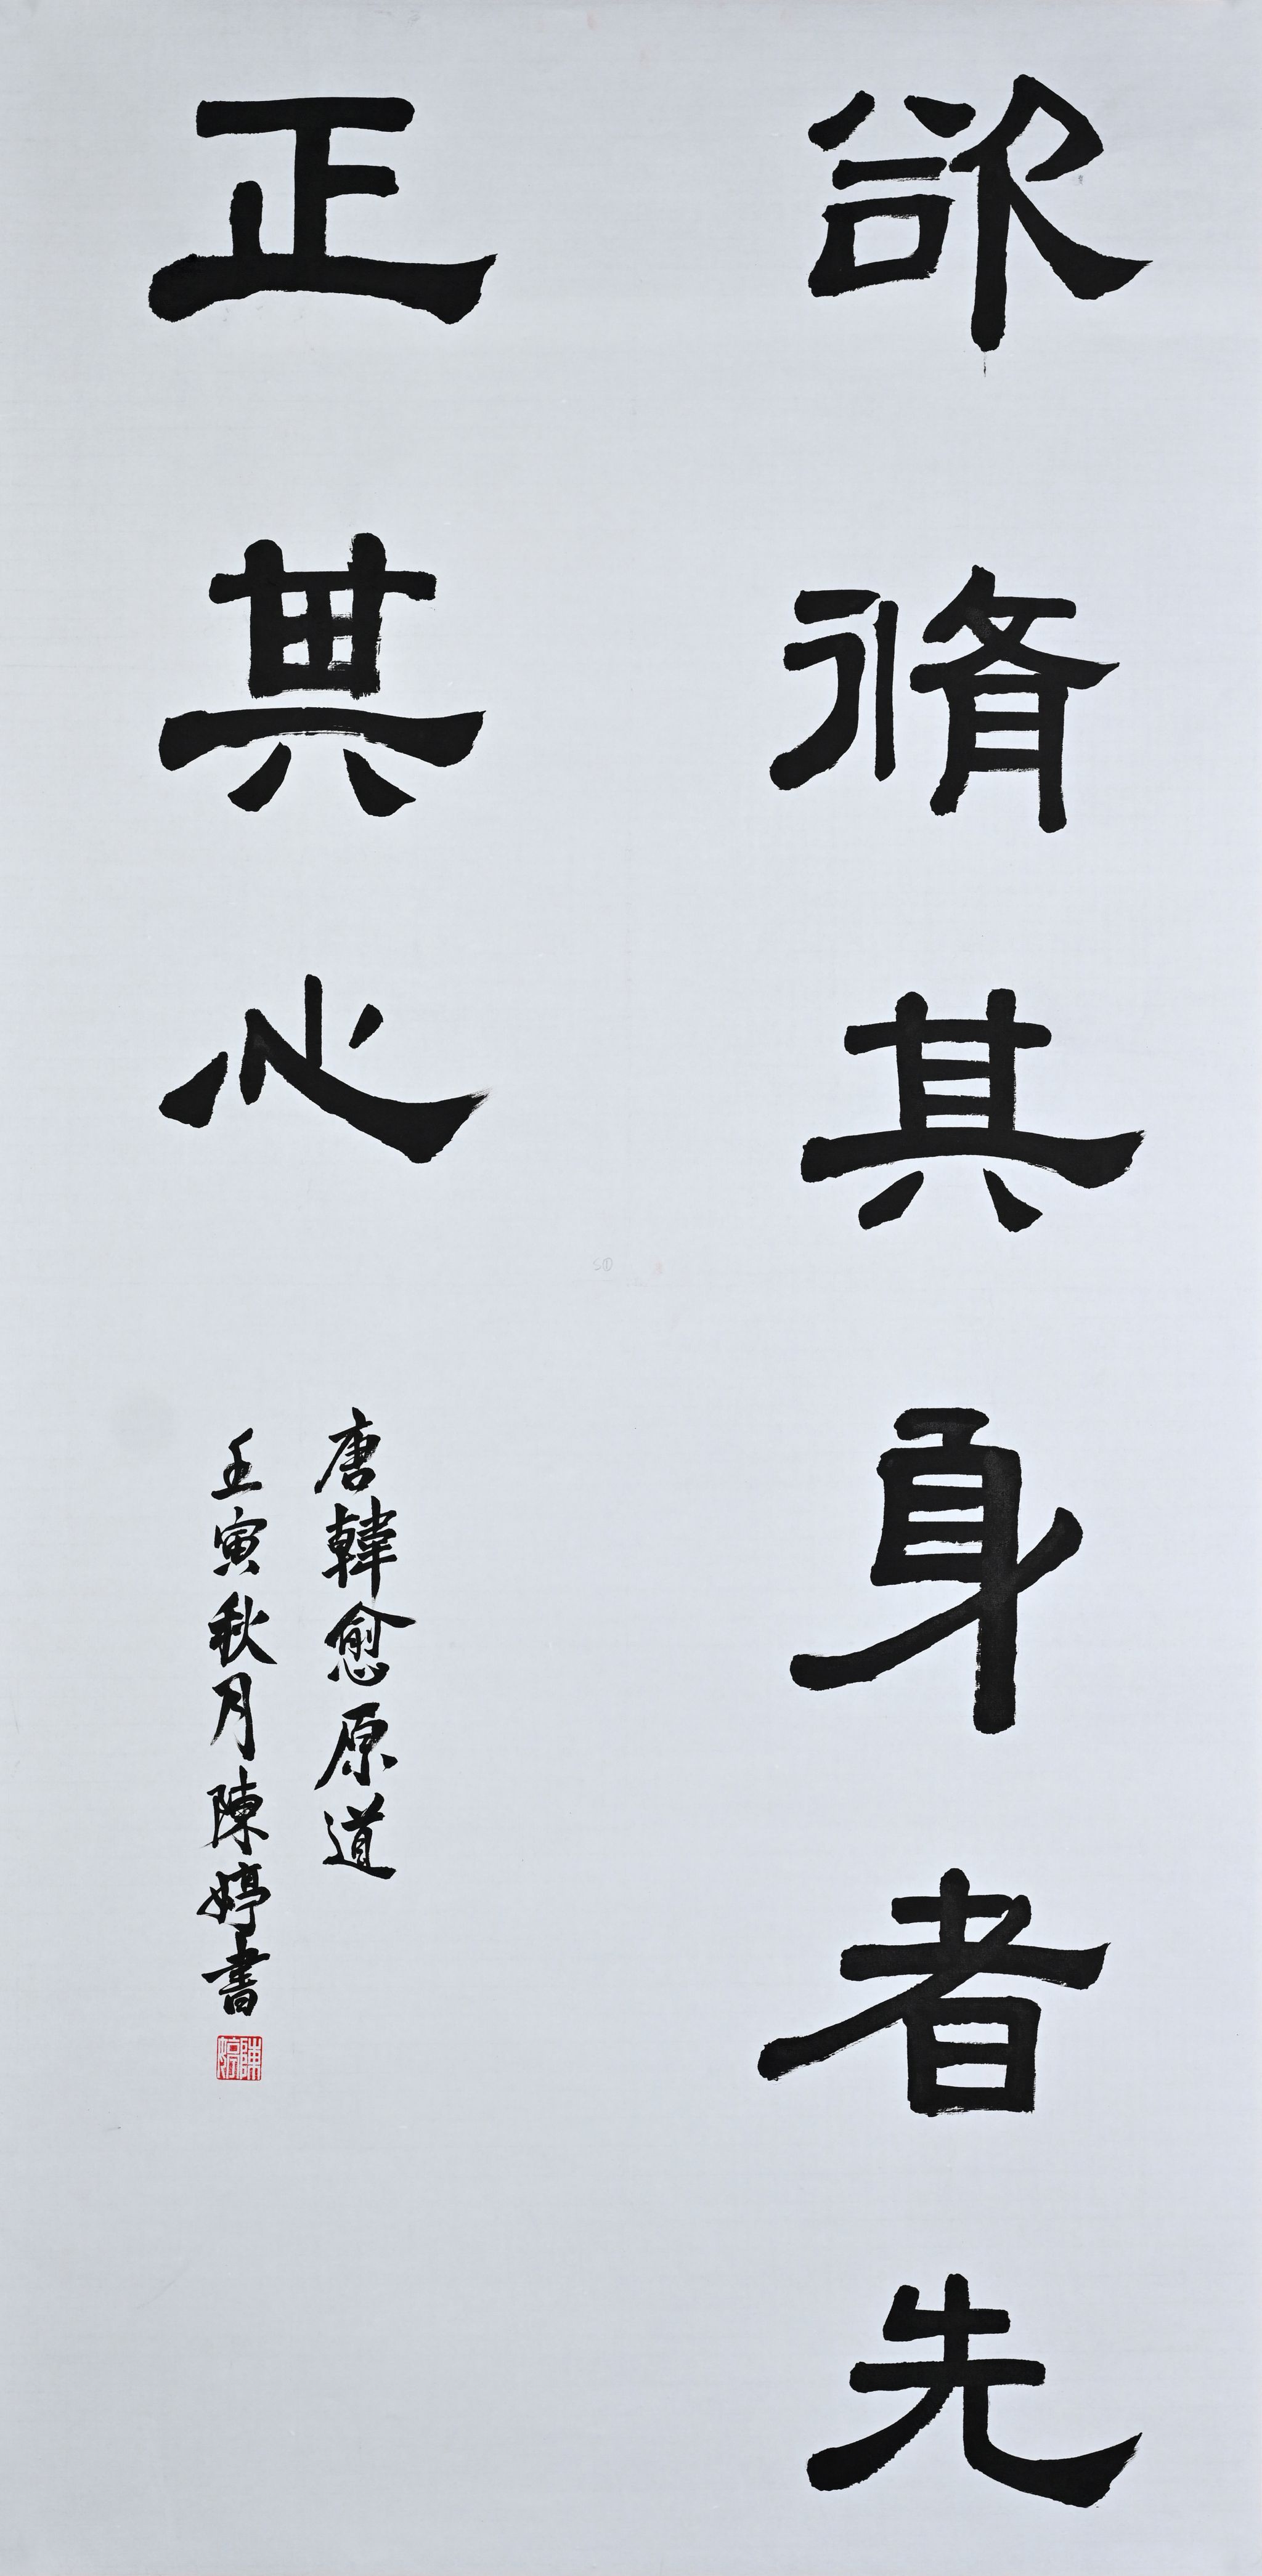 欲脩其身者先
正其心
唐韓愈原道
壬寅秋月陳婷書
陳婷